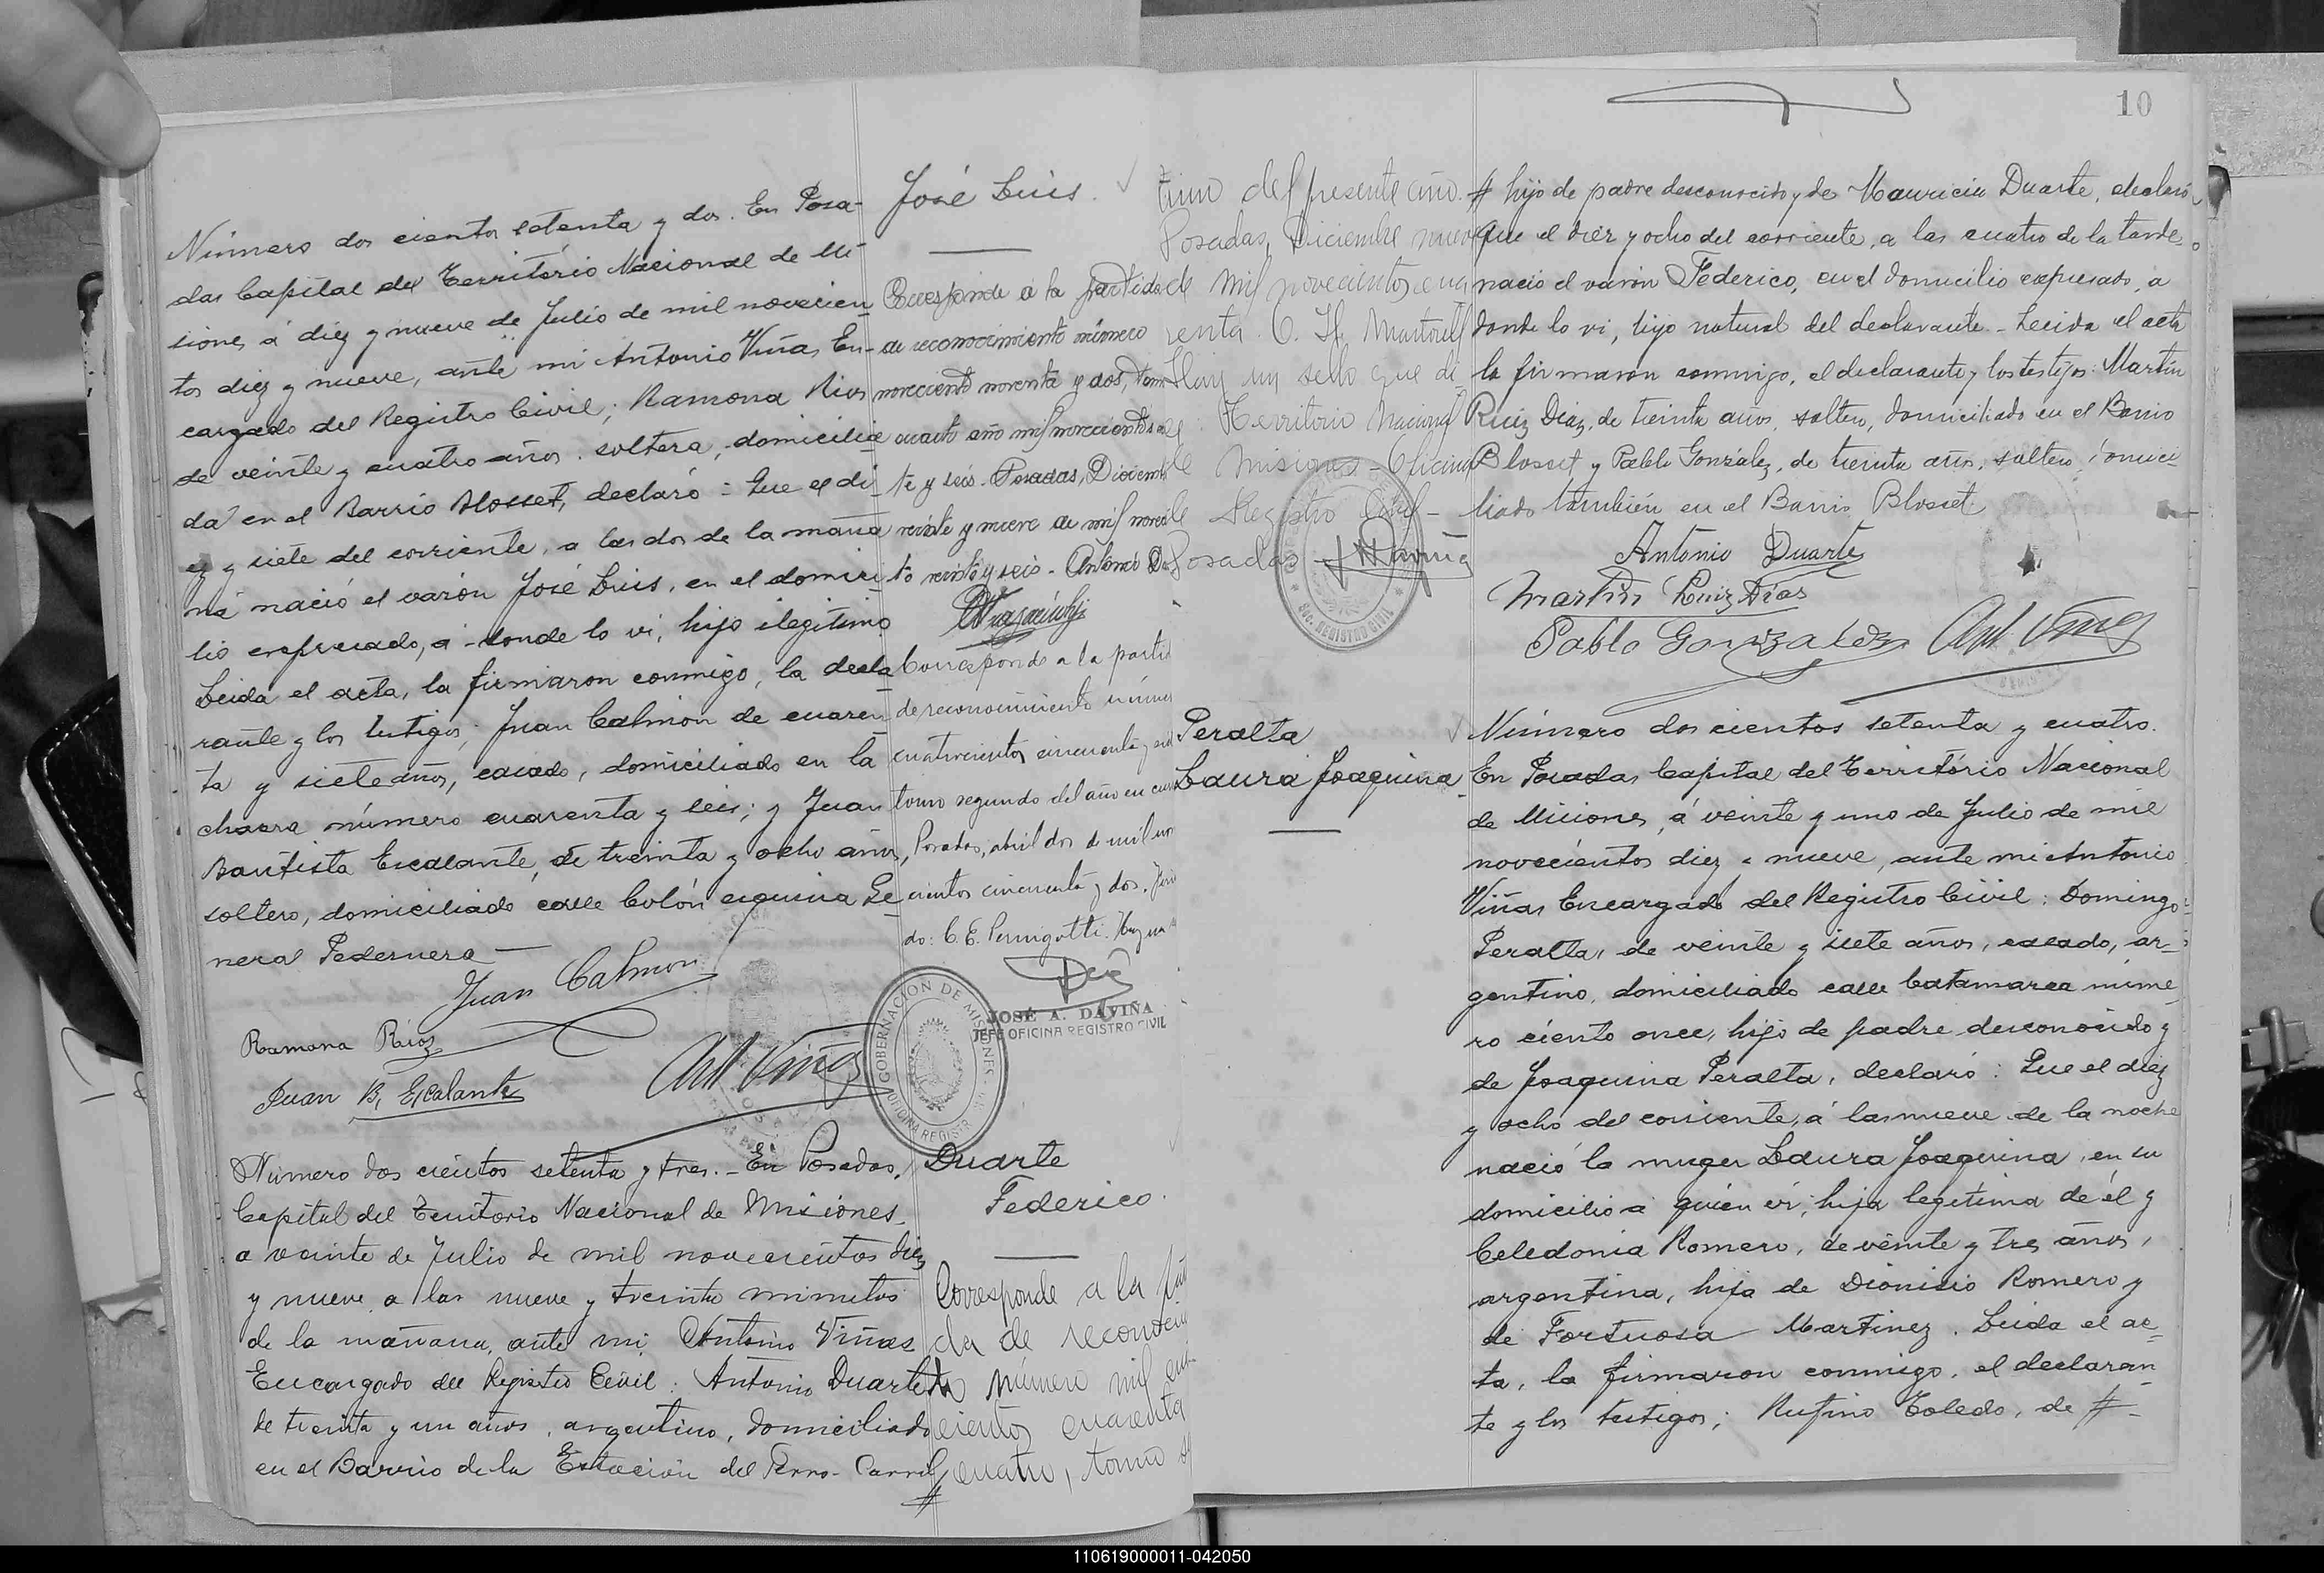 Número dos cientos setenta y dos. En Posa-
das Capital del Território Nacional de Mi-
siones á diez y nueve de Julio de mil novecien-
tos diez y nueve, ante mi Antonio Viñas En-
cargado del Registro Civil; Ramona Rios
de veinte y cuatro años, soltera, domicilia
da en el Barrio Blosset, declaró: Que el di-
ez y siete del corriente, a las dos de la maña
na nació el varón José Luis, en el domici-
lio expresado, a donde lo vi, hijo ilegítimo
Leida el acta, la firmaron conmigo, la decla
rante y los testigos; Juan Calmon de cuaren
ta y siete años, casado, domiciliado en la
chacra número cuarenta y seis; y Juan
Bautista Escalante, de treinta y ocho años,
soltero, domiciliado calle Colón esquina Ge
neral Pedernera
Juan Calmon
Ramona Ríos
Juan B. Escalante
Ant Viñas
José Luis.
Corresponde a la partida
de reconocimiento número
novecientos noventa y dos, tomo
cuarto año mil novecientos vein
te y seis. Posadas, Diciembre
veinte y nueve de mil novecien
to veinte y seis - Antonio
Corresponde a la parti
de reconocimiento númer
cuatrocientos cincuenta y
tomo segundo del año en cur
Posadas, abril dos de mil nov
cientos cincuenta y dos.
do: C. E. Pernigotti. Hay un
JOSÉ A. DAVIÑA
JEFE OFICINA REGISTRO CIVIL
GOBERNACION DE MISIONES
OFICINA REGISTR
Número dos cientos setenta y tres. - En Posadas,
Capital del Territorio Nacional de Misiones,
a veinte de Julio de mil novecientos diez
y nueve, a las nueve y treinta minutos
de la mañana, ante mi, Antonio Viñas
Encargado del Registro Civil: Antonio Duarte
de treinta y un años, argentino, domiciliado
en el Barrio de la Estación del Ferro-Carril
#
Duarte
Federico.
Corresponde a la par
da de reconoci
to número mil
cientos cuarenta
y cuatro, tomo
10
timo del presente año.
Posadas, Diciembre nueve
de mil novecientos cua
renta. O. H. Martorell
Hay un sello que di
ce: Territorio Nacional
de Misiones - Oficina
de Registro Civil -
Posadas
REGISTRO CIVIL
# hijo de padre desconocido y de Mauricia Duarte, declaró
que el diez y ocho del corriente, a las cuatro de la tarde,
nació el varón Federico, en el domicilio expresado, a
donde lo vi, hijo natural del declarante - Leida el acta
la firmaron conmigo, el declarante y los testigos: Martín
Ruiz Diaz, de treinta años, soltero, domiciliado en el Barrio
Blosset y Pablo González, de treinta años, soltero, domici-
liado también en el Barrio Blosset.
Antonio Duarte
Martin Ruiz Dias
Pablo Gonzzalez
Ant Viñas
Peralta
Laura Joaquina
Número dos cientos setenta y cuatro.
En Posadas Capital del Território Nacional
de Misiones, á veinte y uno de Julio de mil
novecientos diez y nueve, ante mi Antonio
Viñas Encargado del Registro Civil: Domingo
Peralta, de veinte y siete años, casado, ar-
gentino, domiciliado calle Catamarca núme-
ro ciento once, hijo de padre desconocido y
de Joaquina Peralta, declaró: Que el diez
y ocho del corriente, á las nueve de la noche
nació la muger Laura Joaquina, en su
domicilio a quien vi, hija legítima de él y
Celedonia Romero, de veinte y tres años,
argentina, hija de Dionisio Romero y
de Fortuosa Martinez. Leida el ac-
ta, la firmaron conmigo, el declaran-
te y los testigos; Rufino Toledo, de #-
110619000011-042050